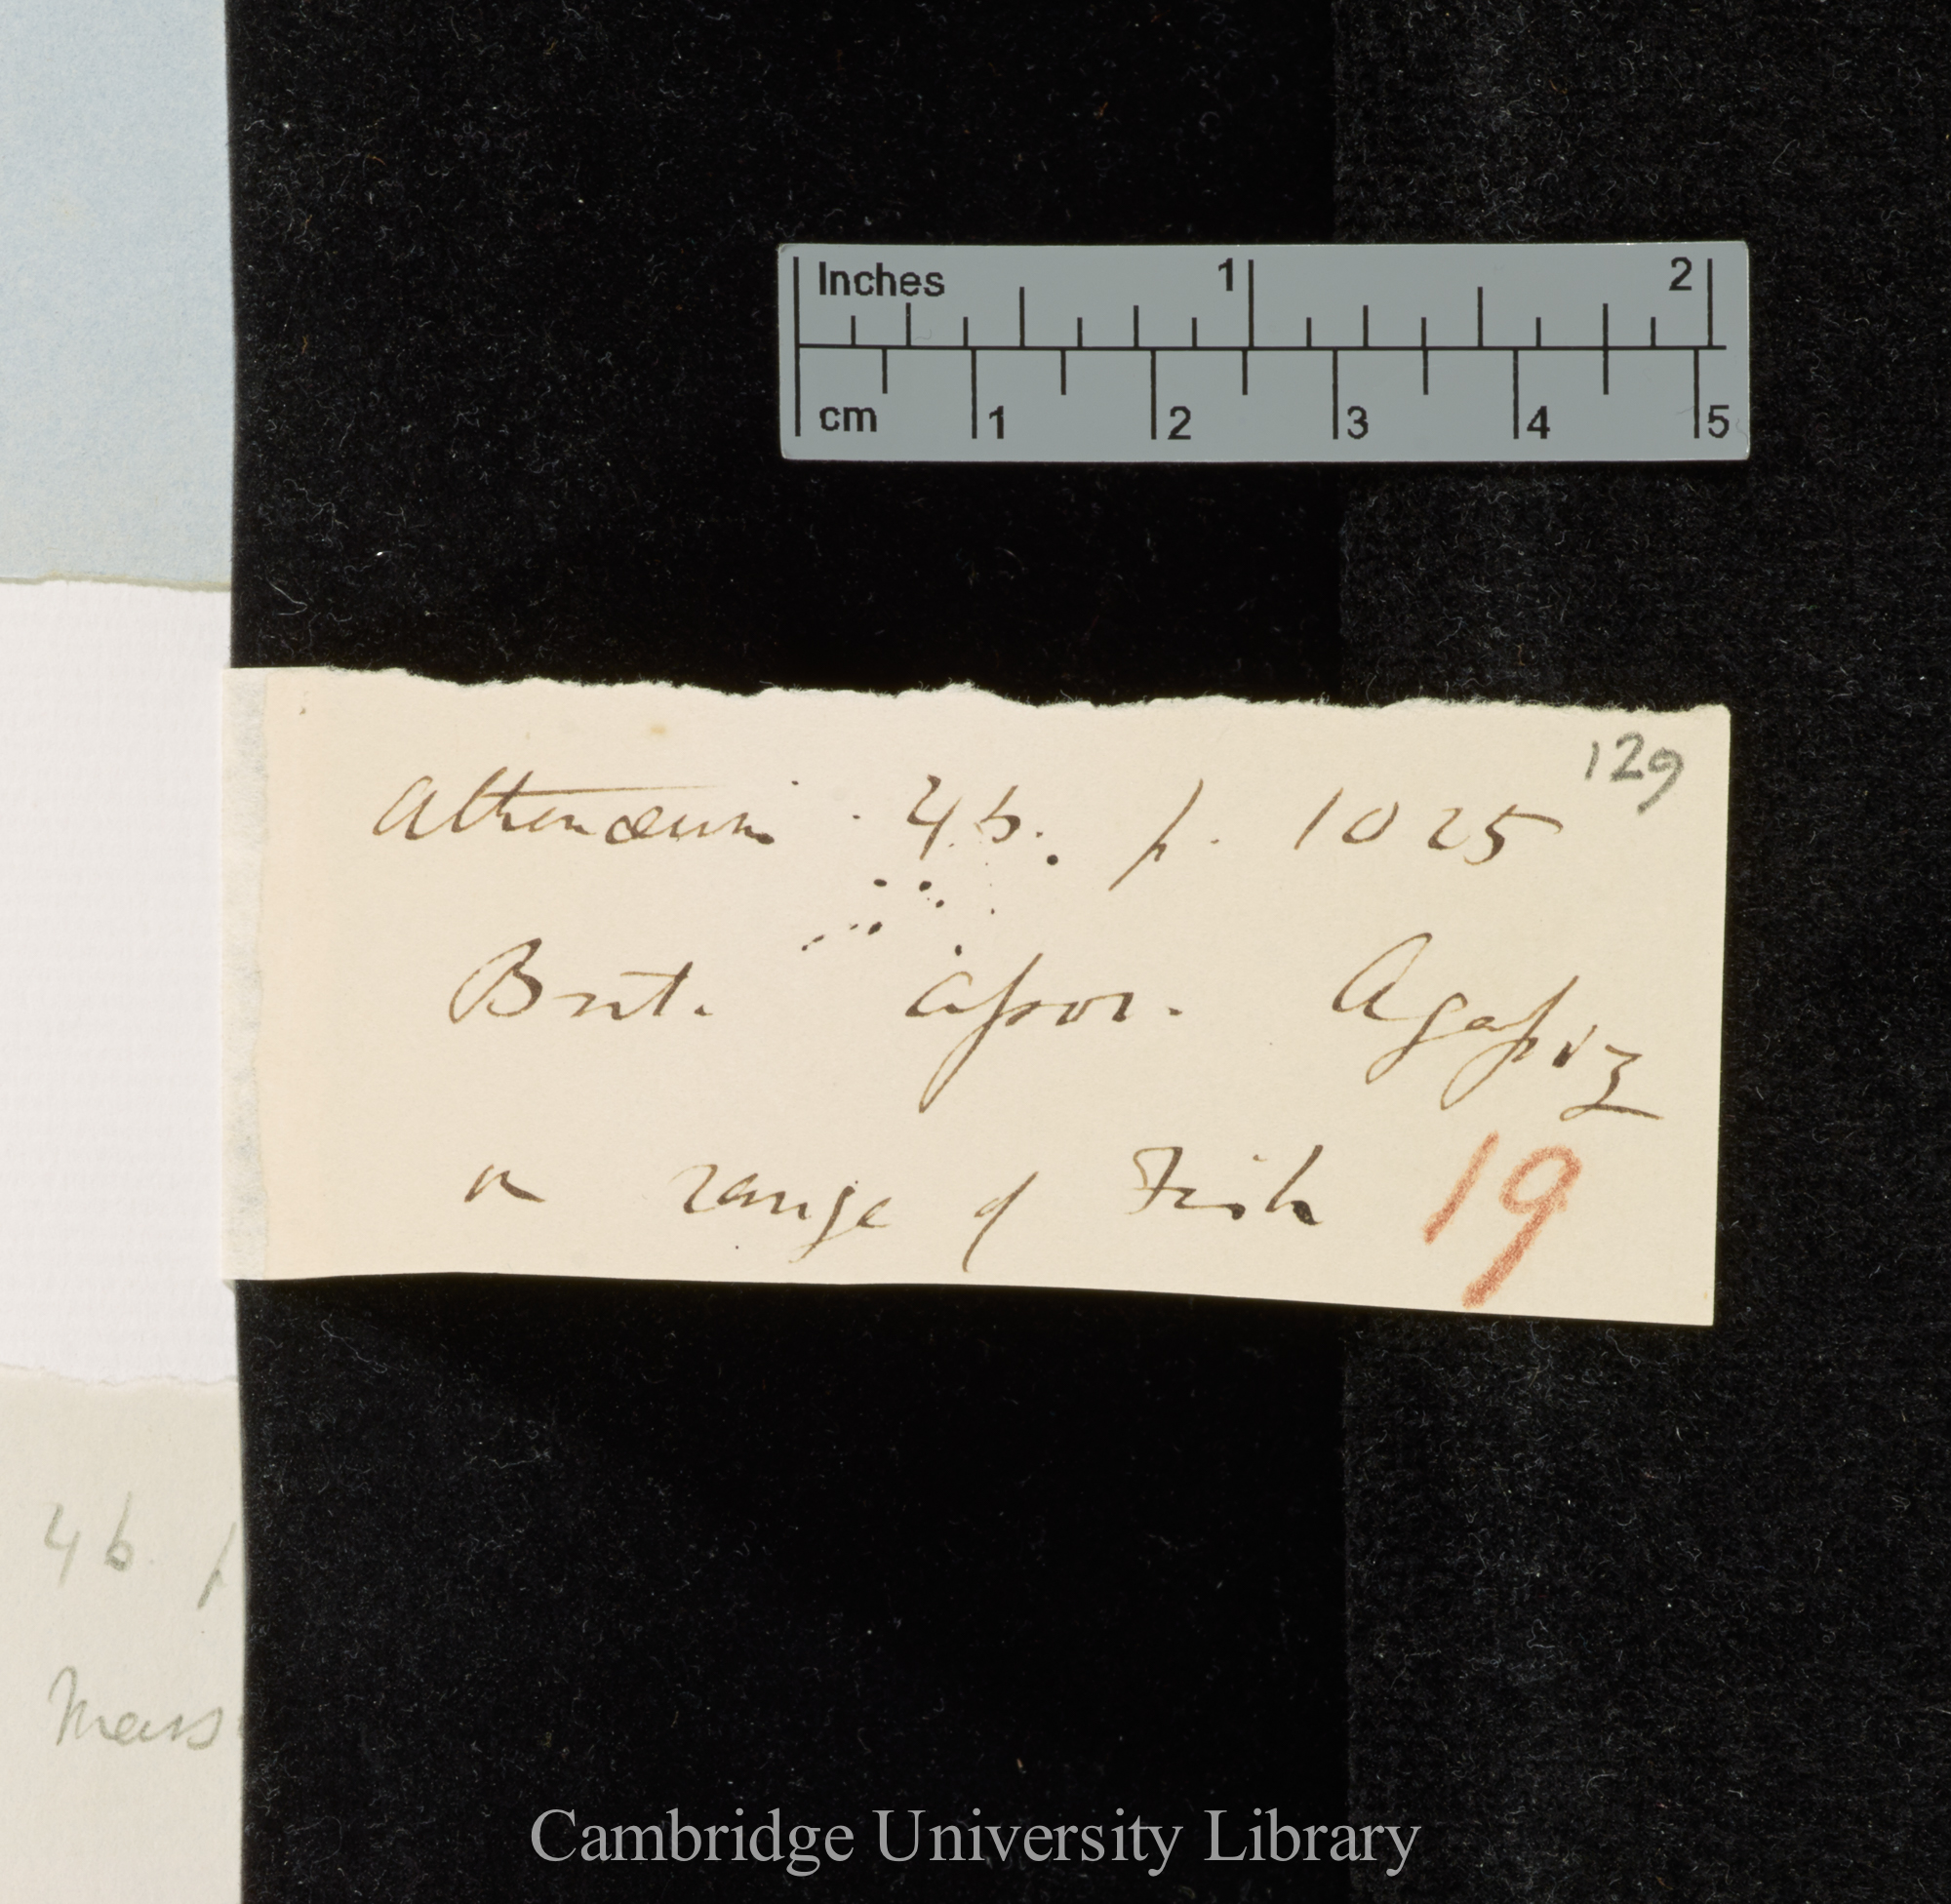 Inches 1 2
cm 1 2 3 4 5
129
Athenæum. 46. p. 1025
Brit. Assoc. Agassiz
on range of Fish 19
46 p
Mass
Cambridge University Library